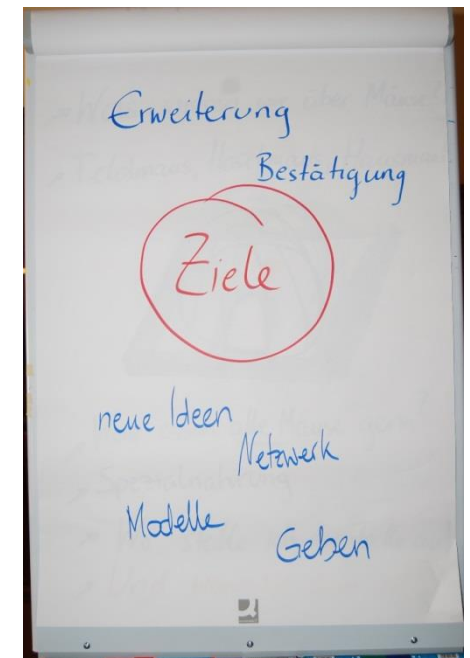 Erweiterung
Bestätigung
Ziele
neue Ideen
Netzwerk
Modelle
Geben